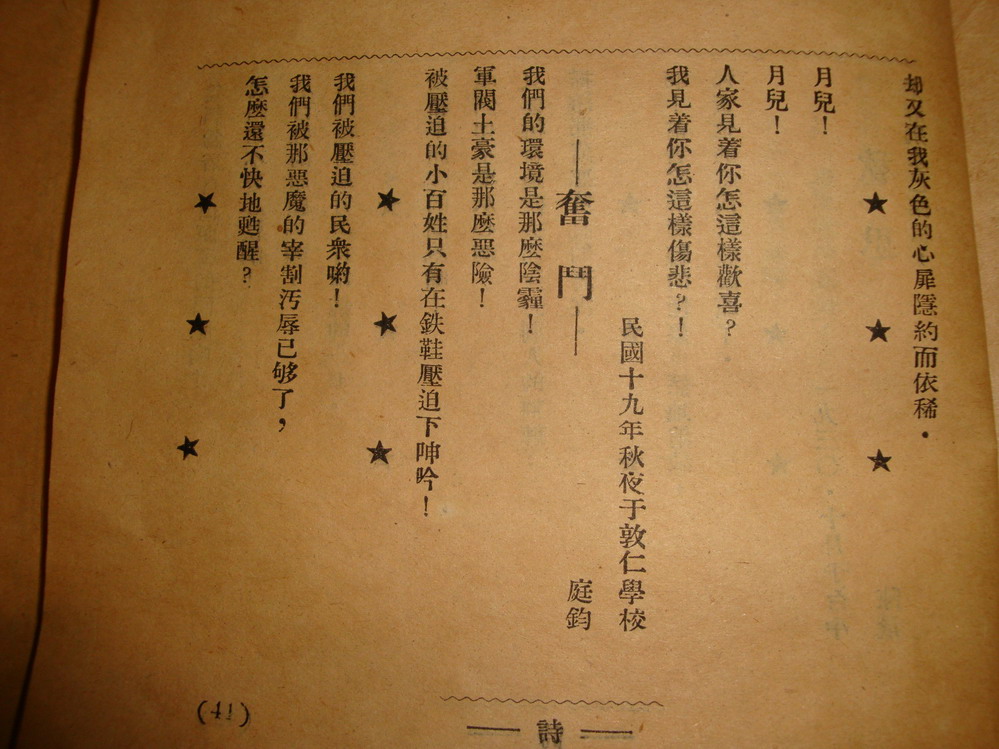 却又在我灰色的心扉隱約而依稀.
★ ★ ★
月兒!
月兒!
人家見着你怎這樣歡喜?
我見着你怎這樣傷悲?!
民國十九年秋夜于敦仁學校
——奮鬥——
庭鈞
我們的環境是那麼陰霾!
軍閥土豪是那麼惡險!
被壓迫的小百姓只有在鉄鞋壓迫下呻吟!
★ ★ ★
我們被壓迫的民衆喲!
我們被那惡魔的宰割汚辱已够了,
怎麼還不快地甦醒?
★ ★ ★
——詩——
(41)